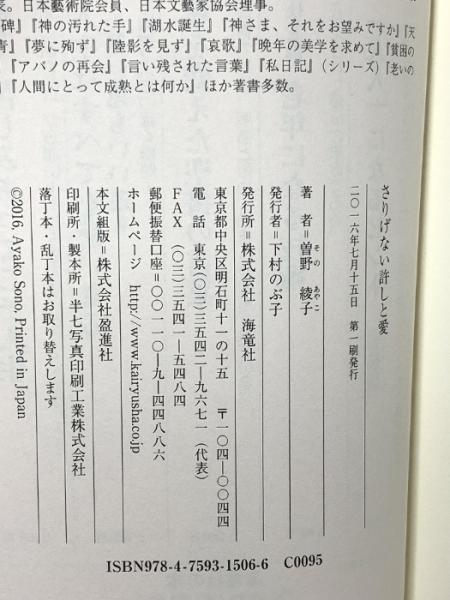 長。日本藝術院会員、日本文藝家協会理事。
碑』『神の汚れた手』『湖水誕生』『神さま、それをお望みですか』『天
青』『夢に殉ず』『陸影を見ず』『哀歌』『晩年の美学を求めて』『貧困の
『アバノの再会』『言い残された言葉』『私日記』(シリーズ)『老いの
『人間にとって成熟とは何か』ほか著書多数。
さりげない許しと愛
二〇一六年七月十五日 第一刷発行
著 者＝曽野綾子
その あやこ
発行者＝下村のぶ子
発行所＝株式会社 海竜社
東京都中央区明石町十一の十五 〒一〇四―〇〇四四
電 話 東京(〇三)三五四二―九六七一(代表)
FAX (〇三)三五四一―五四八四
郵便振替口座＝〇〇一一〇―九―四四八八六
ホームページ http://www.kairyusha.co.jp
本文組版＝株式会社盈進社
印刷所・製本所＝半七写真印刷工業株式会社
落丁本・乱丁本はお取り替えします
©2016, Ayako Sono, Printed in Japan
ISBN978-4-7593-1506-6 C0095